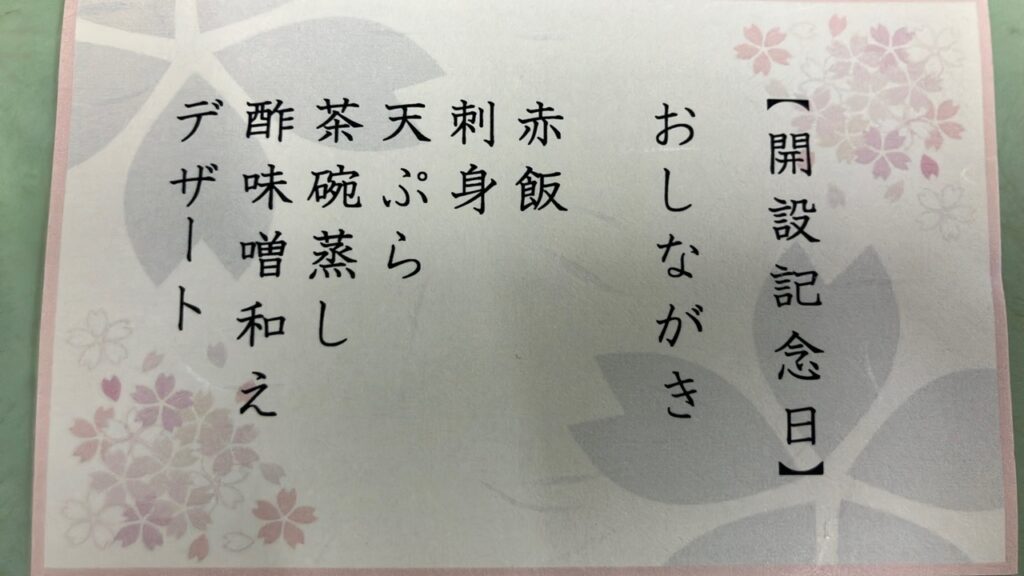 【開設記念日】
おしながき
赤飯
刺身
天ぷら
茶碗蒸し
酢味噌和え
デザート